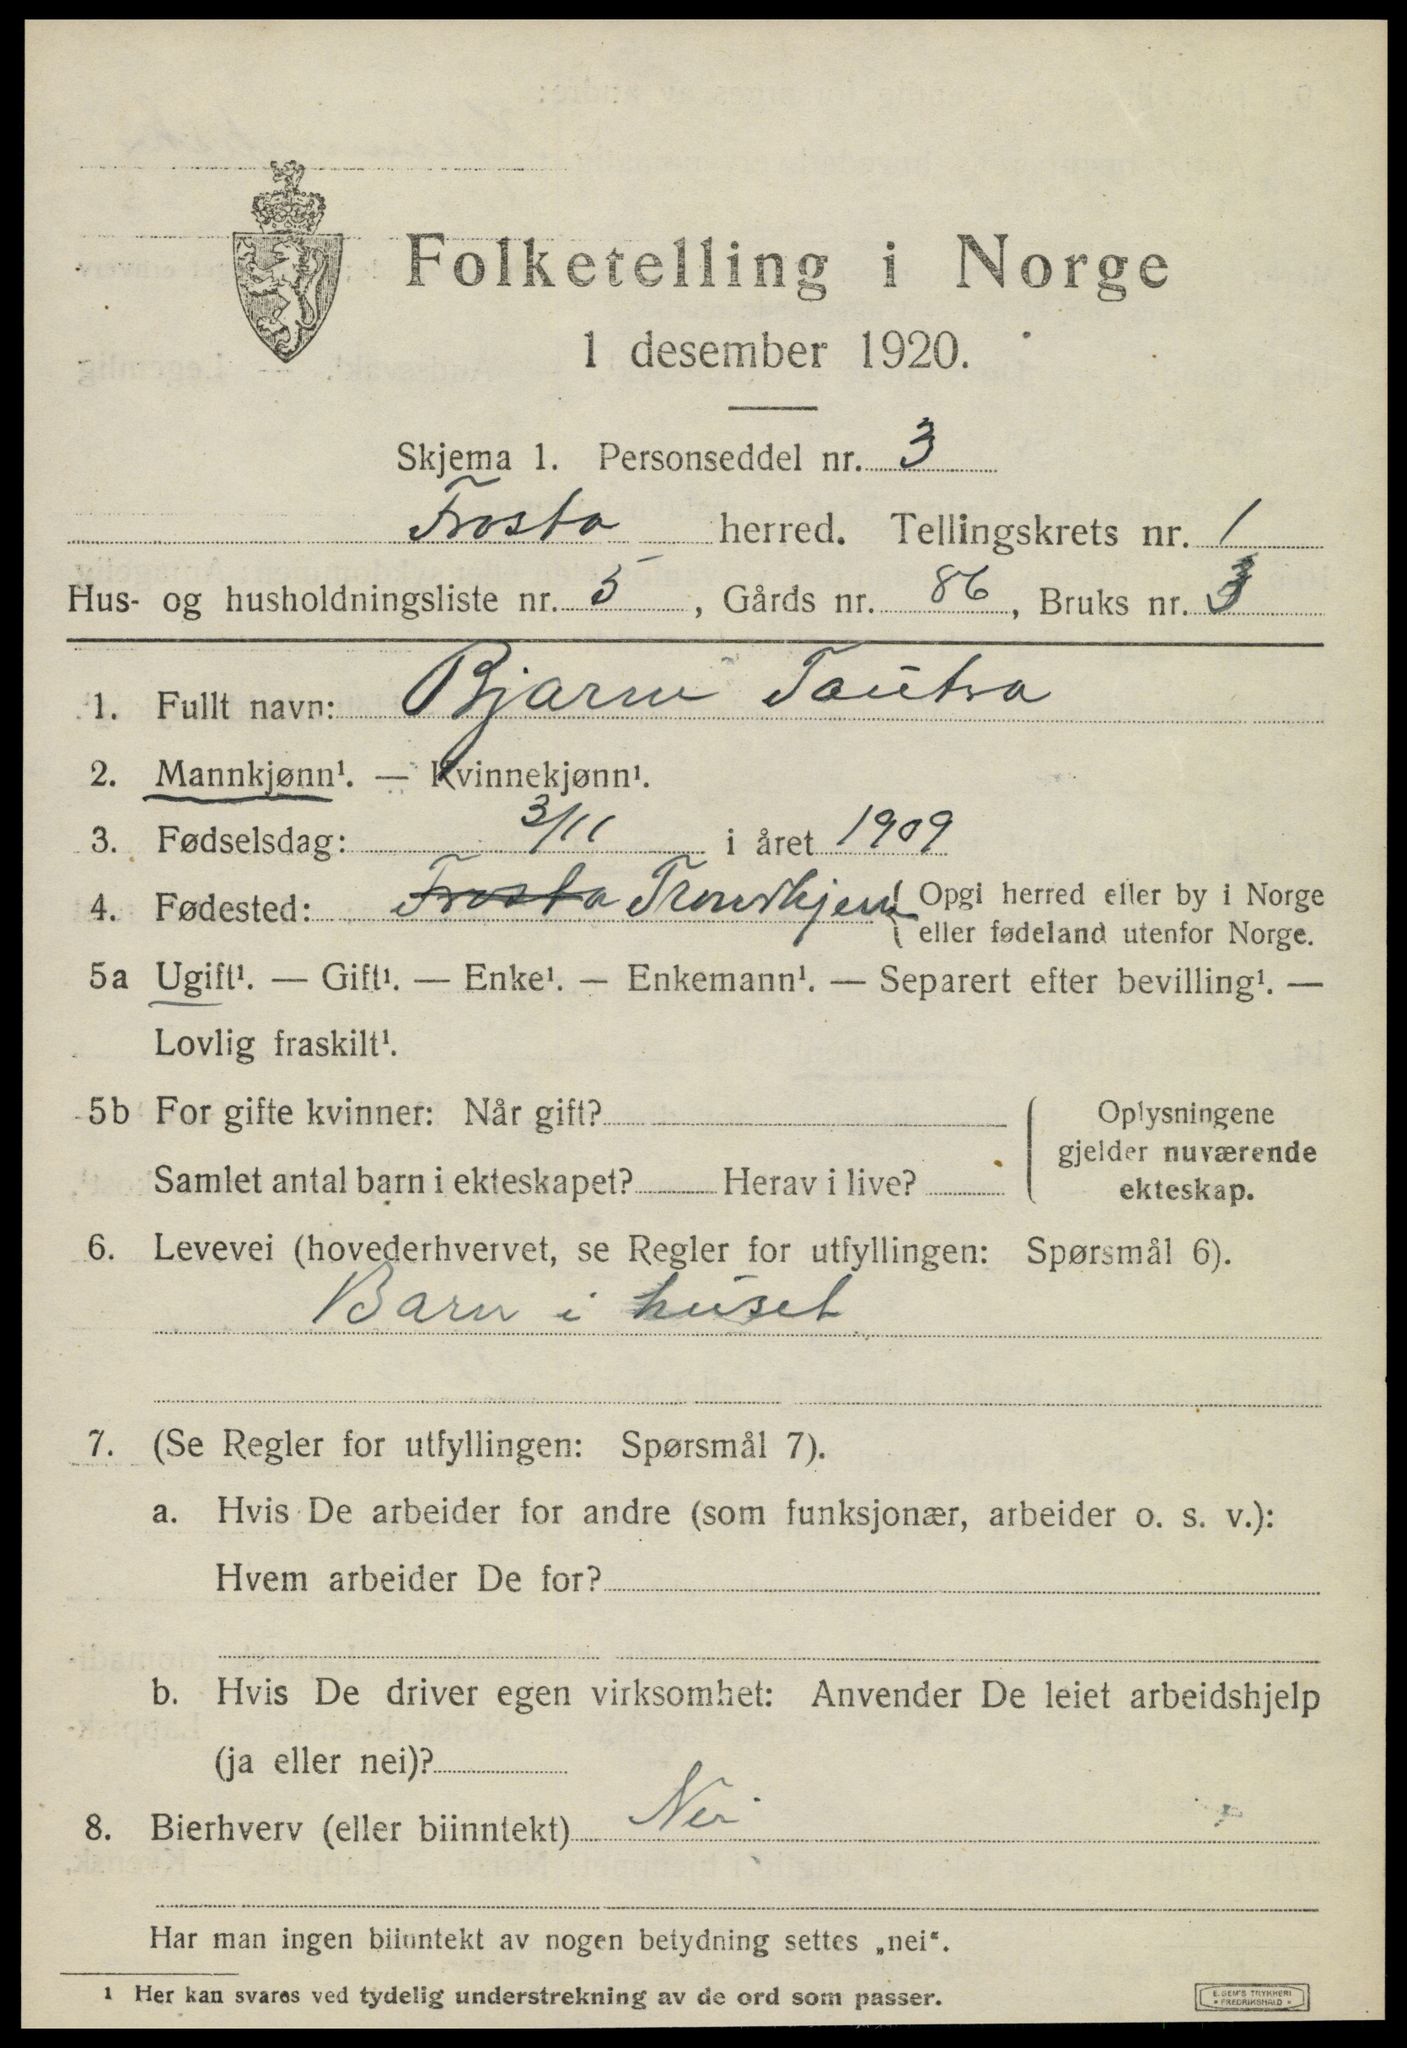 Folketelling i Norge
1 desember 1920.
Skjema 1. Personseddel nr. 3
Frosta herred. Tellingskrets nr. 1
Hus- og husholdningsliste nr. 5, Gårds nr. 86, Bruks nr. 3
1. Fullt navn: Bjarne Tautra
2. Mannkjønn¹. — Kvinnekjønn¹.
3. Fødselsdag: 3/11 i året 1909
4. Fødested: Frosta Trondhjem { Opgi herred eller by i Norge
eller fødeland utenfor Norge.
5a Ugift¹. — Gift¹. — Enke¹. — Enkemann¹. — Separert efter bevilling¹. —
Lovlig fraskilt¹.
5b For gifte kvinner: Når gift?
Samlet antal barn i ekteskapet? Herav i live?
Oplysningene
gjelder nuværende
ekteskap.
6. Levevei (hovederhvervet, se Regler for utfyllingen: Spørsmål 6).
Barn i huset
7. (Se Regler for utfyllingen: Spørsmål 7).
a. Hvis De arbeider for andre (som funksjonær, arbeider o. s. v.):
Hvem arbeider De for?
b. Hvis De driver egen virksomhet: Anvender De leiet arbeidshjelp
(ja eller nei)?
8. Bierhverv (eller biinntekt) Nei
Har man ingen biinntekt av nogen betydning settes „nei“.
1 Her kan svares ved tydelig understrekning av de ord som passer.
E. SEM'S TRYKKERI
• FREDRIKSHALD •